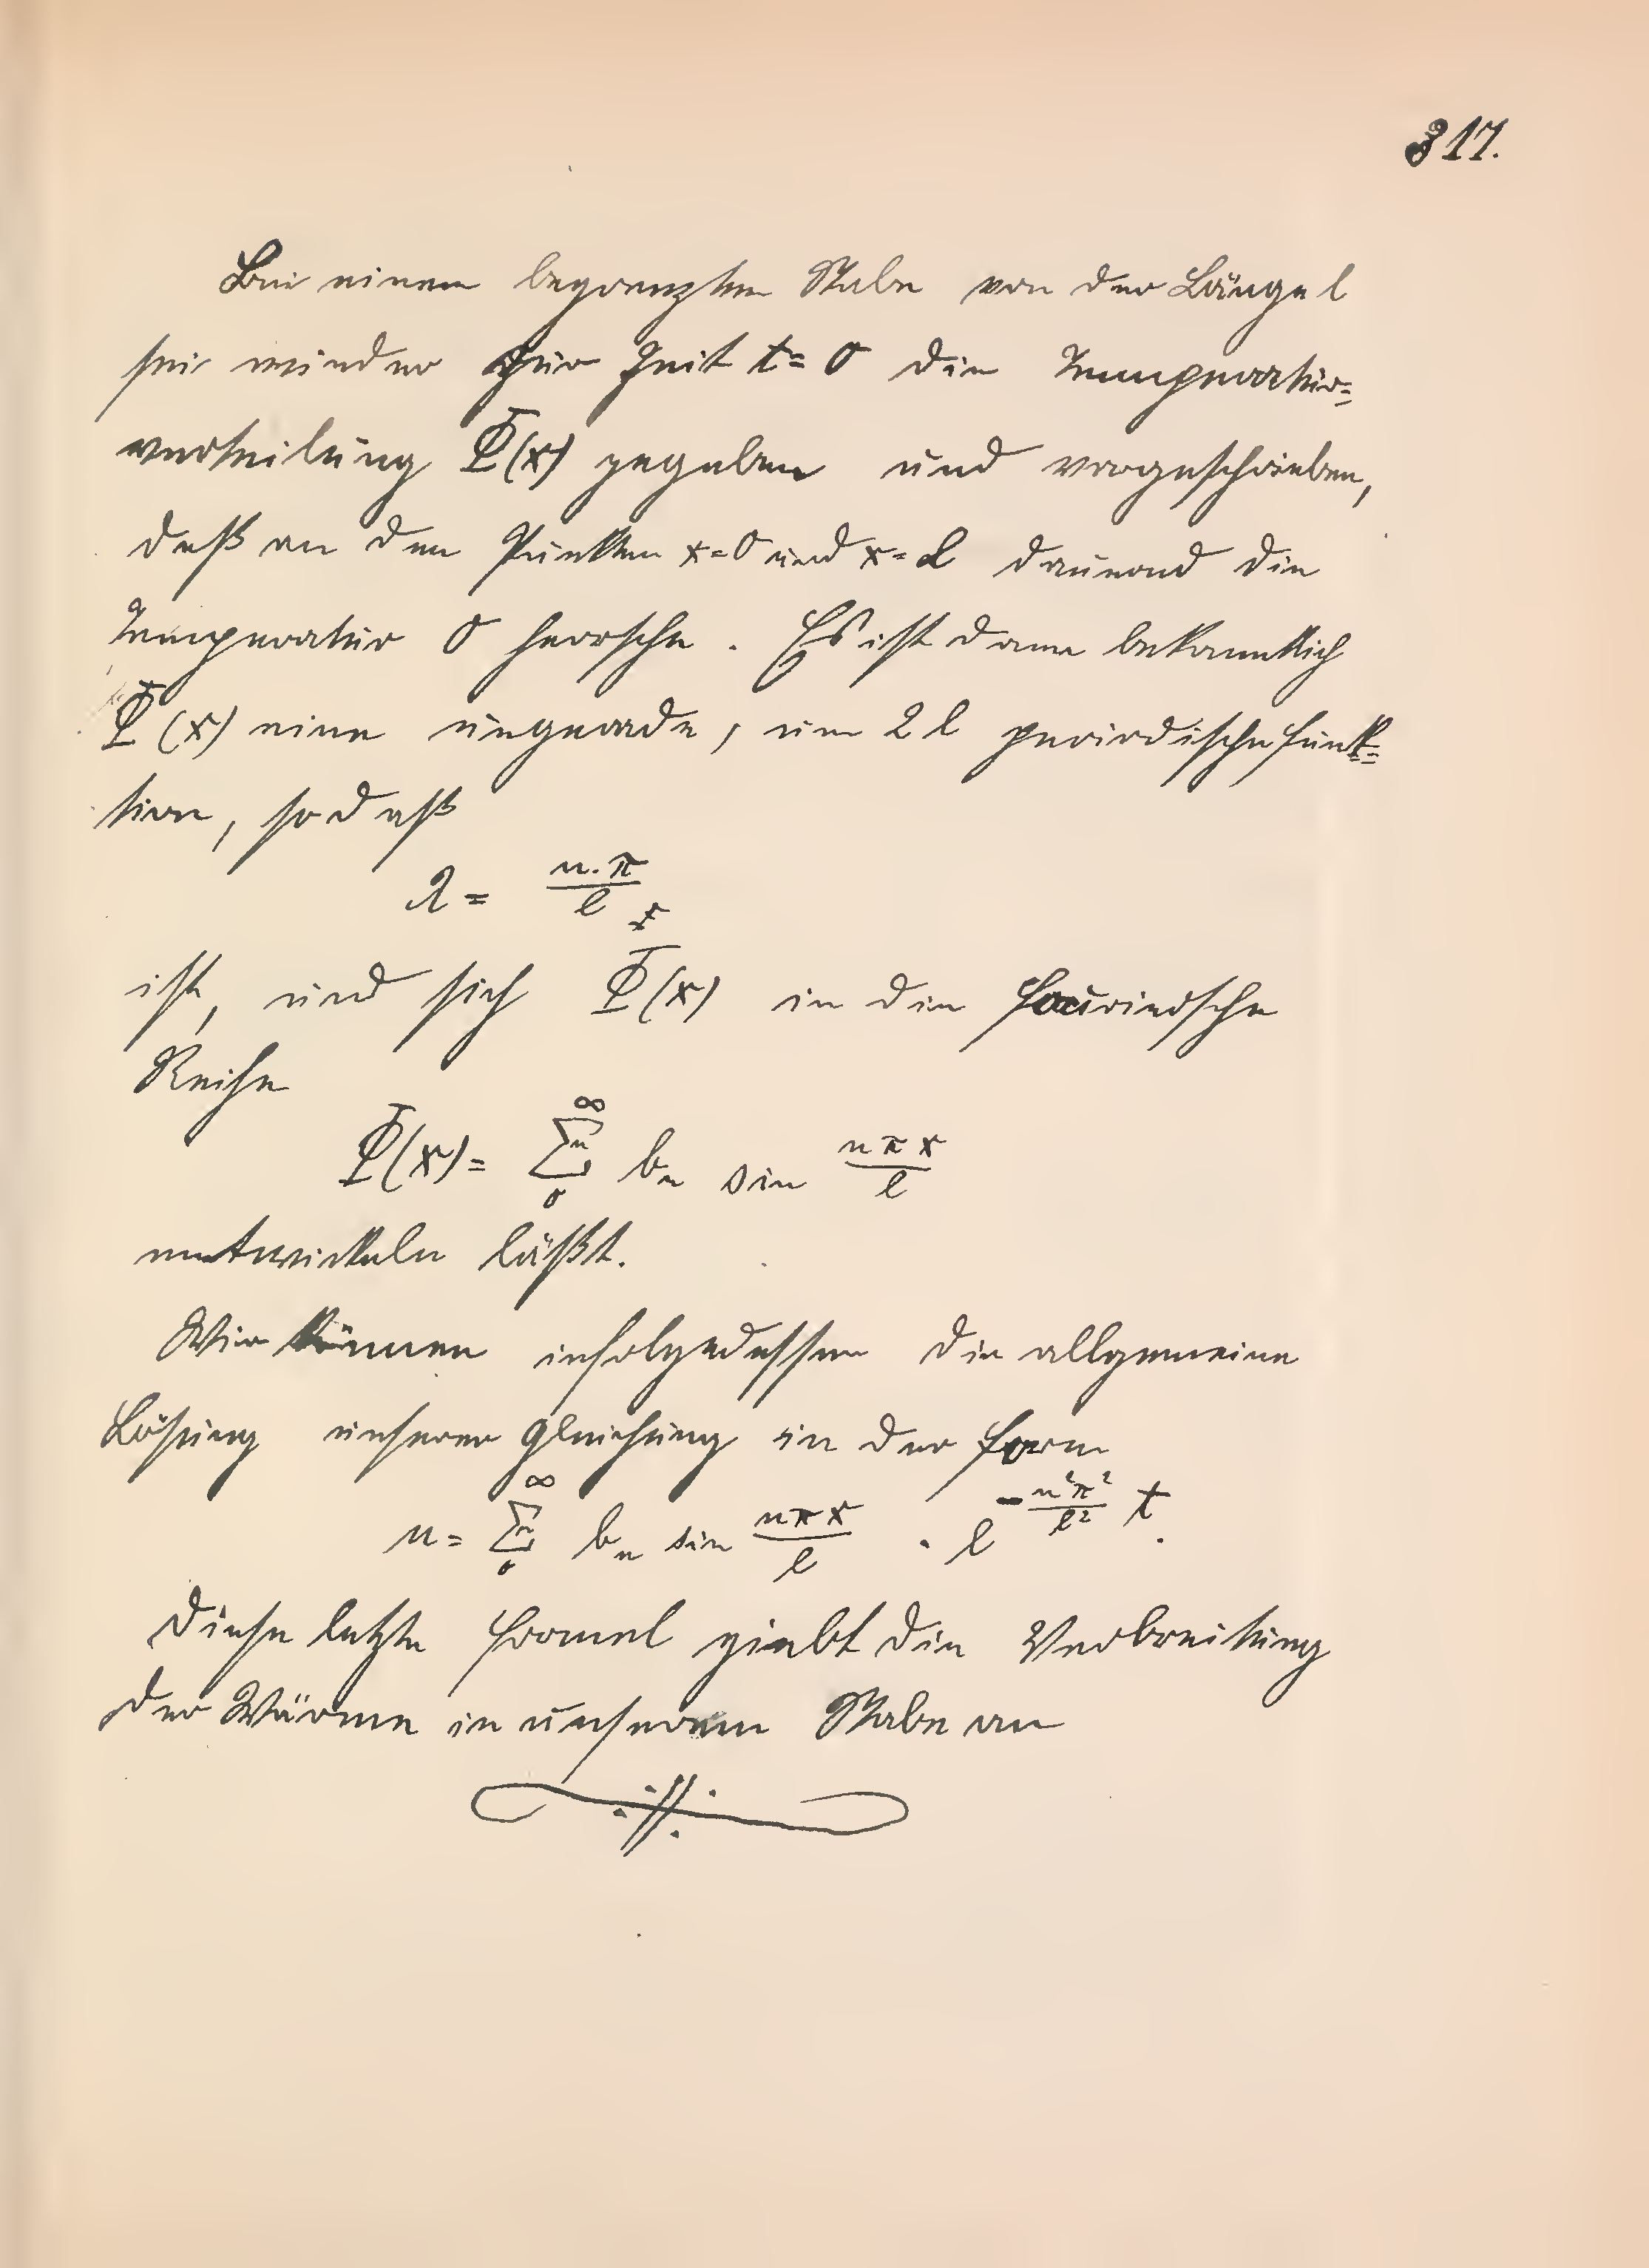 317.
Bei einem begrenzten Stabe von der Länge l
sei wieder zur Zeit t = 0 die Temperatur=
verteilung Φ(x) gegeben und vorgeschrieben,
daß an den Punkten x = 0 und x = l dauernd die
Temperatur 0 herrsche. Es ist dann bekanntlich
Φ(x) eine ungerade, um 2l periodische Funk=
tion, so daß
λ = n·π/l
ist, und sich Φ(x) in die Fouriersche
Reihe
Φ(x) = ∑ₙ₀^∞ bₙ sin nπx/l
entwickeln läßt.
Wir können infolgedessen die allgemeine
Lösung unserer Gleichung in der Form
u = ∑ₙ₀^∞ bₙ sin nπx/l · e^(-n²π²/l² t).
Diese letzte Formel giebt die Verbreitung
der Wärme in unserem Stabe an